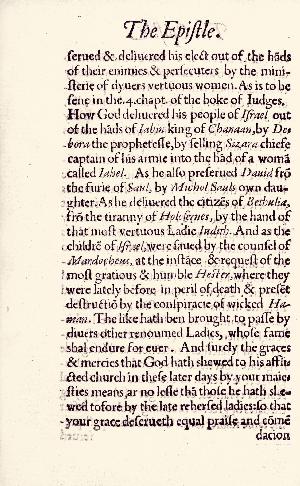 The Epistle.
serued & deliuered his elect out of the hāds
of their enimies & persecuters, by the mini-
sterie of dyuers vertuous women. As is to be
sene in the .4. chapt. of the boke of Iudges.
How God deliuered his people of Israel out
of the hāds of Iabin king of Chanaan, by De-
bora the prophetesse, by selling Sizara chiefe
captain of his armie into the hād of a womā
called Iahel. As he also preserued Dauid frō
the furie of Saul, by Michol Sauls own dau-
ghter. As he deliuered the citizēs of Bethulia,
frō the tiranny of Holofernes, by the hand of
that most vertuous Ladie Iudith. And as the
childrē of Israel, were saued by the counsel of
Mardocheus, at the instāce, & request of the
most gratious & humble Hester, where they
were lately before in peril of death & presēt
destructiō by the conspiracie of wicked Ha-
man. The like hath ben brought to passe by
diuers other renoumed Ladies, whose fame
shal endure for euer. And surely the graces
& mercies that God hath shewed to his affli-
cted church in these later days by your maie-
sties means, ar no lesse thā those he hath she-
wed tofore by the late rehersed ladies: so that
your grace deserueth equal praise and cōmē
dacion